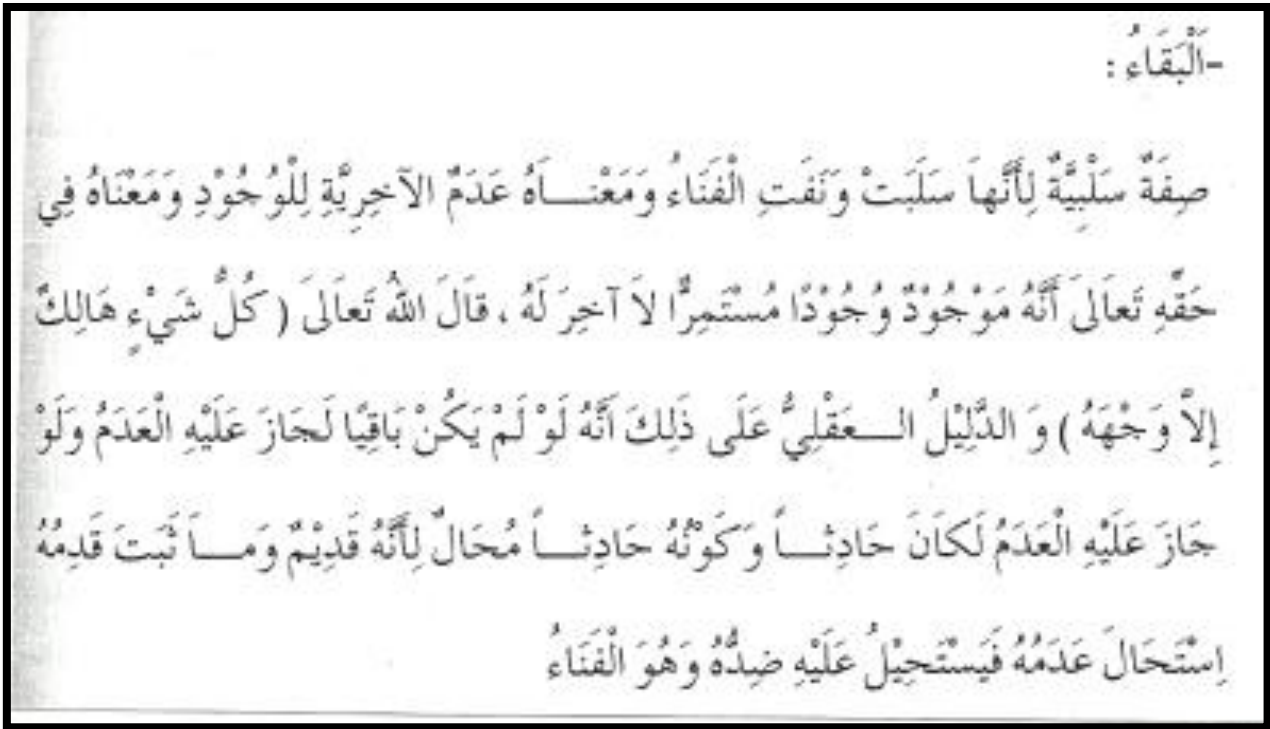 -اَلْبَقَاءُ :
صِفَةٌ سَلْبِيَّةٌ لِأَنَّهاَ سَلَبَتْ وَنَفَتِ الْفَنَاءُ وَمَعْنــــاَهُ عَدَمُ الآخِرِيَّةِ لِلْوُجُوْدِ وَمَعْنَاهُ فِي
حَقِّهِ تَعَالىَ أَنَّهُ مَوْجُوْدٌ وُجُوْدًا مُسْتَمِرًّا لاَ آخِرَ لَهُ ، قَالَ اللهُ تَعَالىَ ( كُلُّ شَيْءٍ هَالِكٌ
إِلاَّ وَجْهَهُ ) وَ الدَّلِيْلُ الــــعَقْلِيُّ عَلَى ذَلِكَ اَنَّهُ لَوْ لَمْ يَكُنْ بَاقِيًا لَجَازَ عَلَيْهِ الْعَدَمُ وَلَوْ
جَازَ عَلَيْهِ الْعَدَمُ لَكَانَ حَادِثــــاً وَكَوْنُهُ حَادِثــــاً مُحَالٌ لِأَنَّهُ قَدِيْمٌ وَمــــاَ ثَبَتَ قَدِمُهُ
اِسْتَحَالَ عَدَمُهُ فَيَسْتَحِيْلُ عَلَيْهِ ضِدُّهُ وَهُوَ الْفَنَاءُ